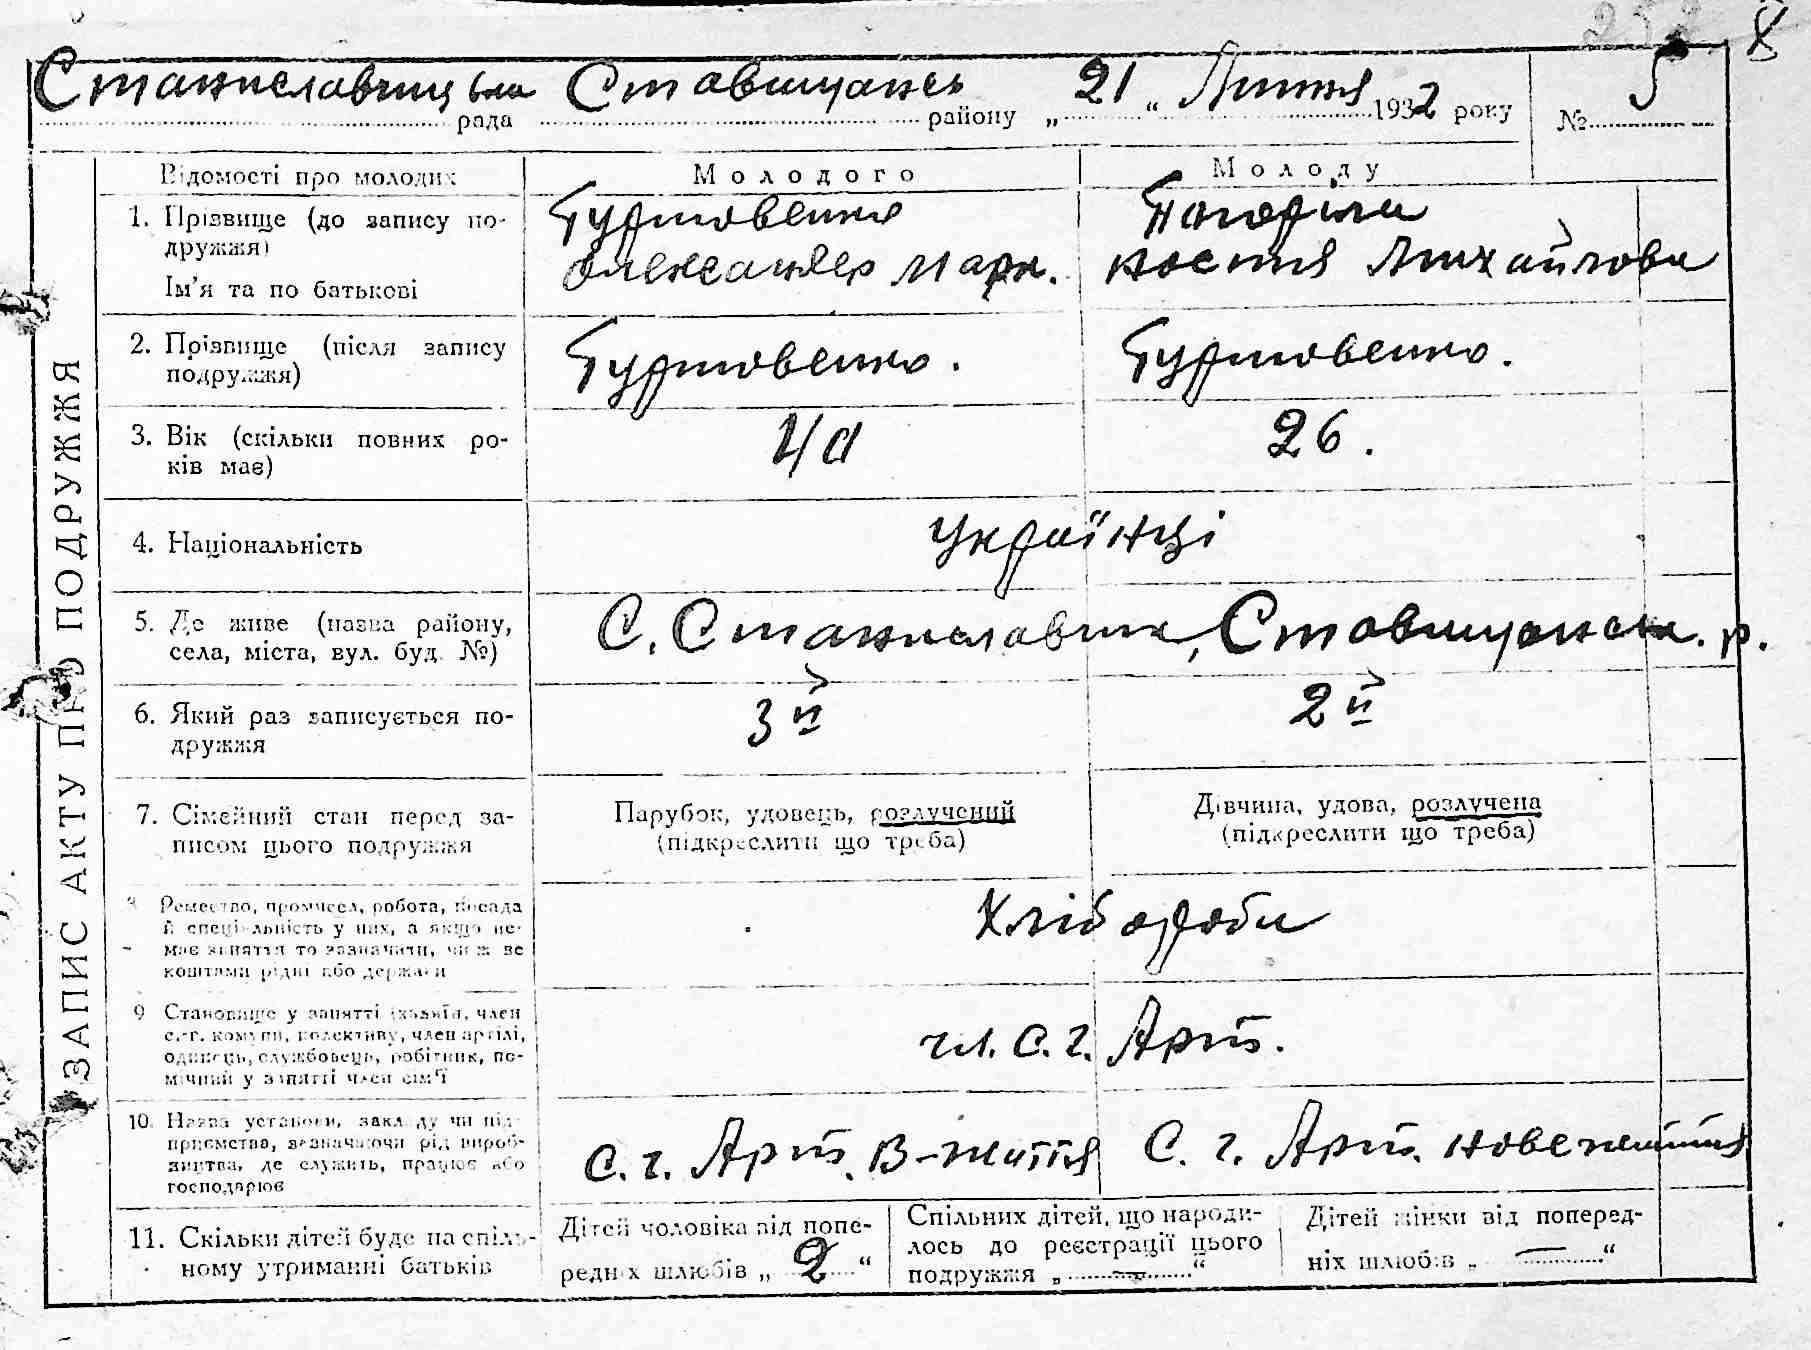 Станиславчицька рада Ставищансь району „21" Лютня 1932 року № 5
ЗАПИС АКТУ ПРО ПОДРУЖЖЯ
Відомості про молодих
Молодого
Молоду
1. Прізвище (до запису по-
дружжя)
Ім'я та по батькові
Гуртовенко
Олександер Марк.
Погоріла
Настя Михайлова
2. Прізвище (після запису
подружжя)
Гуртовенко.
Гуртовенко.
3. Вік (скільки повних ро-
ків має)
26.
4. Національність
Українці
5. Де живе (назва району,
села, міста, вул. буд. №)
С. Станиславчик, Ставищанськ. р.
6. Який раз записується по-
дружжя
3й
2й
7. Сімейний стан перед за-
писом цього подружжя
Парубок, удовець, розлучений
(підкреслити що треба)
Дівчина, удова, розлучена
(підкреслити що треба)
8. Ремество, промисел, робота, посада
й спеціяльність у них, а якщо не-
має заняття то зазначити, чи ж ве
коштами рідні або держави
Хлібороби
9 Становище у занятті (хазяїн, член
с.-г. комуни, колективу, член артілі,
одинець, службовець, робітник, по-
мічний у занятті член сім'ї
чл. с. г. Арт.
10. Назва установи, закладу чи під-
приємства, зазначаючи рід вироб-
ництва, де служить, працює або
господарює
С. г. Арт. В-життя
С. г. Арт. нове життя
11. Скільки дітей буде на спіль-
ному утриманні батьків
Дітей чоловіка від попе-
редніх шлюбів „ 2 "
Спільних дітей, що народи-
лось до реєстрації цього
подружжя „ — "
Дітей жінки від поперед-
ніх шлюбів „ — "